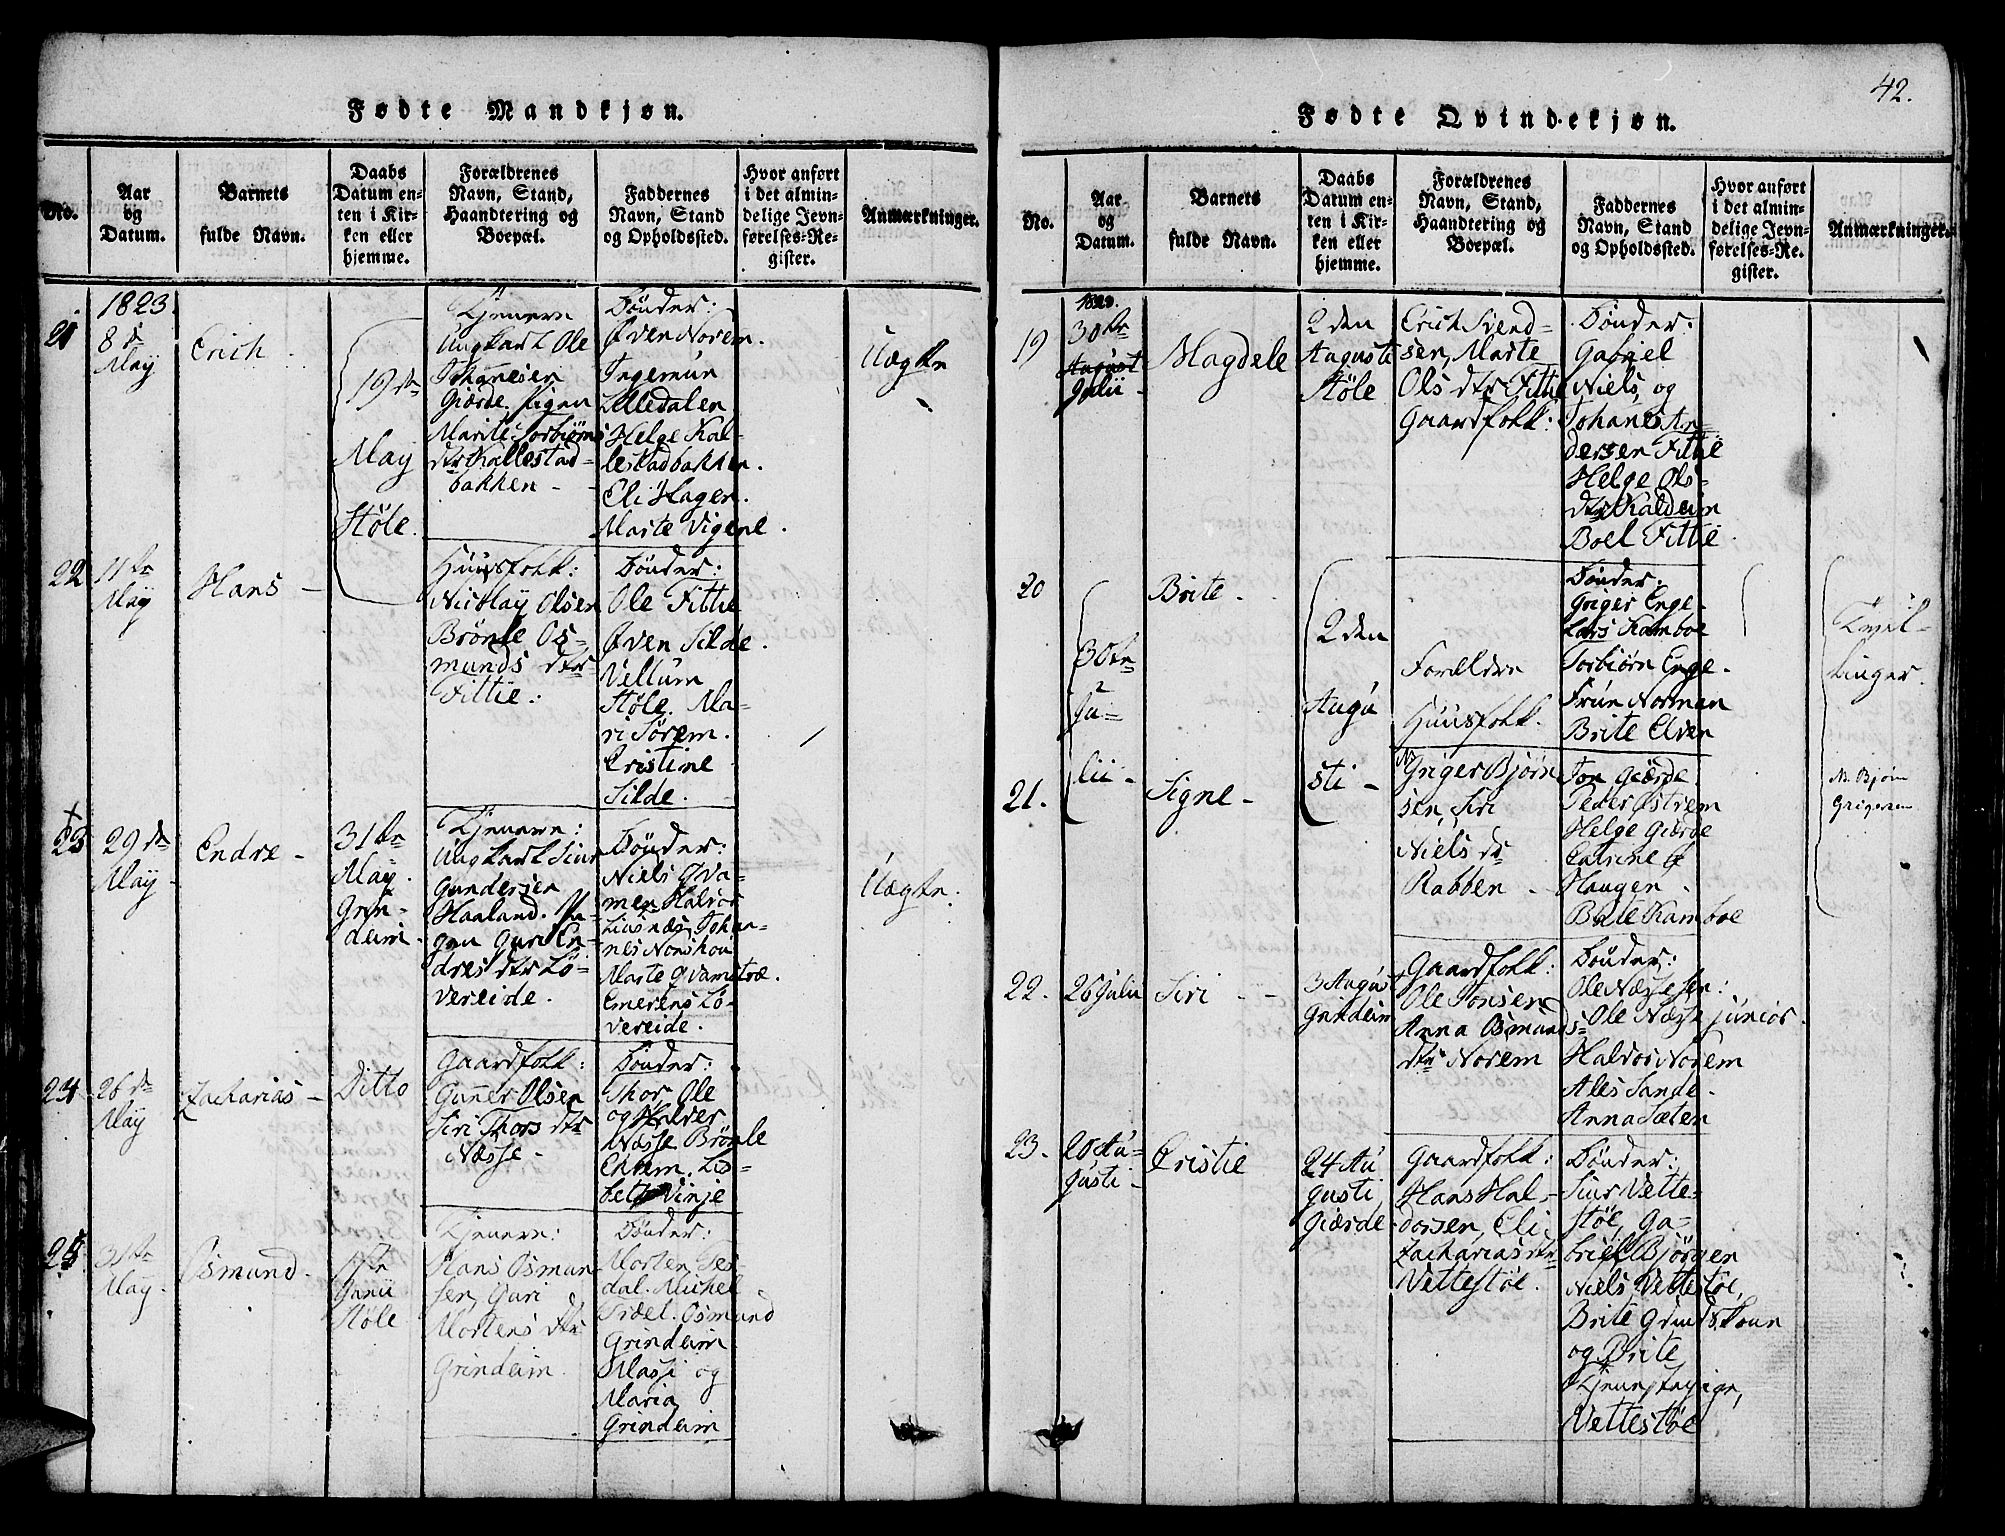 42.
Fødte Mandkjøn.
No.
Aar
og
Datum.
Barnets
fulde Navn.
Daabs
Datum en-
ten i Kir-
ken eller
hjemme.
Forældrenes
Navn, Stand,
Haandtering og
Boepæl.
Faddernes
Navn, Stand
og Opholdssted.
Hvor anført
i det almin-
delige Jevn-
førelses-Re-
gister.
Anmærkninger.
1823
21
8de
May
Erich
19de
May
Støle.
Tjenere
Ungkarl Ole
Johanesen
Giærde. Pigen
Marite Torbiørns
dtr Kallestad-
bakken -
Bønder:
Øven Norem.
Ingemun
Lilledalen
Helge Kal-
lestadbakken.
Eli Hagen.
Marte Vigene.
Uægte
22
11te
May
Hans -
Huusfolk:
Nicolay Olsen
Brønle Os-
munds dtr
Fittie:
Bønder:
Ole Fittie
Øven Silde.
Vellum
Støle. Ma-
ri Sørem.
Cristine
Silde.
23
29de
May -
Endre -
31te
May.
Grin-
deim.
Tjenere:
Ungkarl Siur
Gundersen
Haaland. Pi-
gen Guri En-
dres dtr Lø-
vereide.
Bønder:
Niels Qva-
men. Halvor
Liusnæs, Johan-
nes Norskou
Marte Qvamstræ.
Emerens Lø-
vereide.
Uægte.
24
26de
May
Zacharias -
Ditto
Gaardfolk:
Guner Olsen
Siri Thors dtr
Næsse -
Bønder:
Thor, Ole
og Halver
Næsse Brønle
Ekrem. Lis-
bet Vinje
25
31te
May.
Osmund.
1ste
Junii
Støle
Tjenere:
Hans Osmun-
sen, Guri
Mortens dtr
Grindeim
Bønder:
Morten Tes-
dal. Michel
Trdel. Osmund
Grindeim
Massi og
Maria
Grindeim
Fødte Qvindekjøn.
No.
Aar
og
Datum.
Barnets
fulde Navn.
Daabs
Datum en-
ten i Kir-
ken eller
hjemme.
Forældrenes
Navn, Stand,
Haandtering og
Boepæl.
Faddernes
Navn, Stand
og Opholdssted.
Hvor anført
i det almin-
delige Jevn-
førelses-Re-
gister.
Anmærkninger.
1823.
19
30te
August
Julii -
Magdele
2den
Augusti
Støle
Erich Svend-
sen, Marte
Ols dtr Fittie
Gaardfolk:
Bønder:
Gabriel
Niels, og
Johanes An-
dersen Fittie
Helge Ols-
dtr Kaldeim
Boel Fittie
20
30te
Ju-
lii -
Brite -
2den
Augu
sti -
Forældre
Huusfolk.
Bønder:
Griger Enge-
Lars Kamboe
Torbiørn Enge-
Frun Norman
Brite Elven
Tvil-
linger.
21.
Signe -
Griger Bjørn
sen, Siri
Niels dr
Rabben -
Jon Giærde
Peder Østrem
Helge Giærde
Catrine
Haugen -
Brite Kamboe
N. Bjørn
Grigersen
22.
26 Julii
Siri - -
3 August
Grindeim
Gaardfolk:
Ole Jonsen
Anna Osmunds-
dtr Norem
Bønder:
Ole Næsse sen:
Ole Næsse junior.
Haldor Norem
Ales Sande -
Anna Sæten
23.
20 Au-
gusti -
Cristie
24 Au
gusti,
Giærde
Gaardfolk:
Hans Hal-
dorsen, Eli
Zacharias dtr
Vettestøe.
Bønder:
Siur Vette-
støe, Ga-
briel Bjørgen
Niels Vettestøe,
Brite Grindskoun
og Brite
Tjenestepige,
Vettestøe